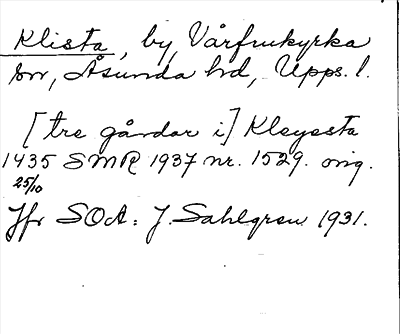 Klista, by, Vårfrukyrka
sn, Åsunda hd, Upps. l.
[tre gårdar i] Kleysta
1435 SMR 1937 nr. 1529. orig.
25/10
Jfr SOA: J. Sahlgren 1931.